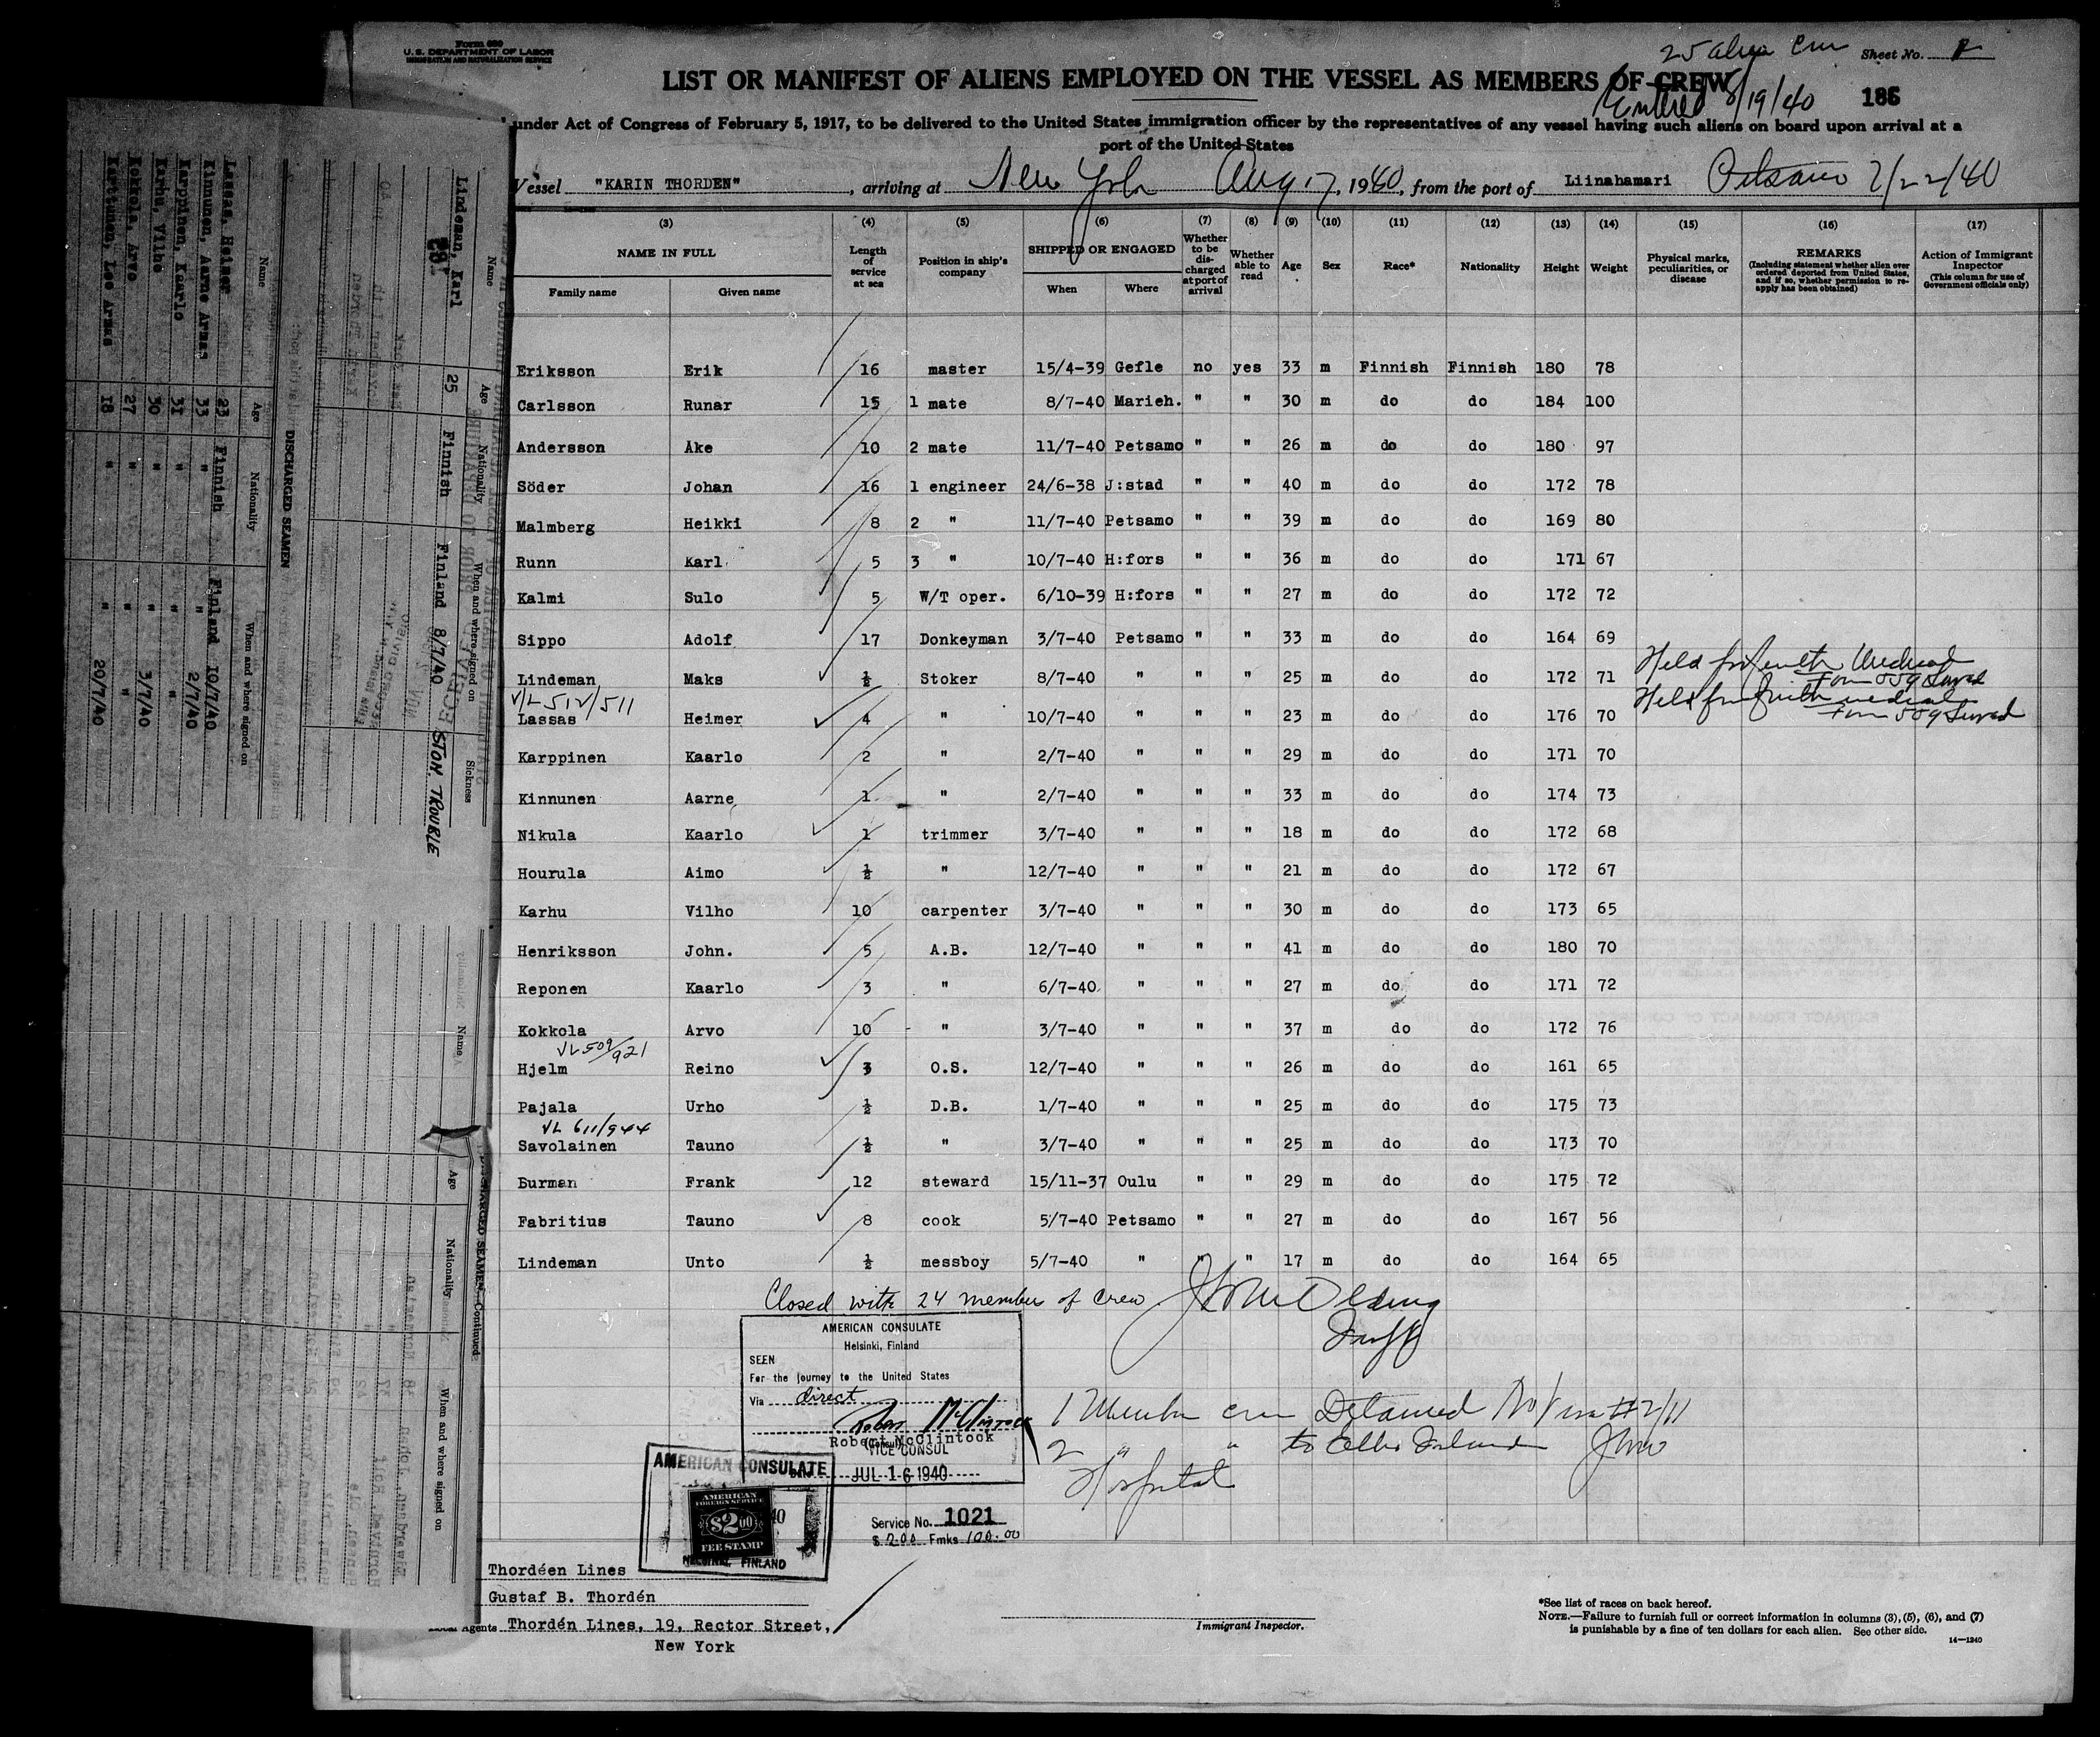 Form 689
U. S. DEPARTMENT OF LABOR
IMMIGRATION AND NATURALIZATION SERVICE
25 alien Crew Sheet No.
LIST OR MANIFEST OF ALIENS EMPLOYED ON THE VESSEL AS MEMBERS OF CREW
Entered 8/19/40 186
under Act of Congress of February 5, 1917, to be delivered to the United States immigration officer by the representatives of any vessel having such aliens on board upon arrival at a
port of the United States
Vessel "KARIN THORDEN", arriving at New York Aug 17, 1940, from the port of Liinahamari Petsamo 7/22/40
(3) (4) (5) (6) (7) (8) (9) (10) (11) (12) (13) (14) (15) (16) (17)
NAME IN FULL Length of service at sea Position in ship's company SHIPPED OR ENGAGED Whether to be discharged at port of arrival Whether able to read Age Sex Race* Nationality Height Weight Physical marks, peculiarities, or disease REMARKS (Including statement whether alien ever ordered deported from United States, and if so, whether permission to re-apply has been obtained) Action of Immigrant Inspector (This column for use of Government officials only)
Family name Given name When Where
Eriksson Erik 16 master 15/4-39 Gefle no yes 33 m Finnish Finnish 180 78
Carlsson Runar 15 1 mate 8/7-40 Marieh. " " 30 m do do 184 100
Andersson Åke 10 2 mate 11/7-40 Petsamo " " 26 m do do 180 97
Söder Johan 16 1 engineer 24/6-38 J:stad " " 40 m do do 172 78
Malmberg Heikki 8 2 " 11/7-40 Petsamo " " 39 m do do 169 80
Runn Karl 5 3 " 10/7-40 H:fors " " 36 m do do 171 67
Kalmi Sulo 5 W/T oper. 6/10-39 H:fors " " 27 m do do 172 72
Sippo Adolf 17 Donkeyman 3/7-40 Petsamo " " 33 m do do 164 69
Lindeman Maks ½ Stoker 8/7-40 " " " 25 m do do 172 71 Held for further Medical Form 559 Served
V/L 512/511
Lassas Heimer 4 " 10/7-40 " " " 23 m do do 176 70 Held for further medical Form 559 Served
Karppinen Kaarlo 2 " 2/7-40 " " " 29 m do do 171 70
Kinnunen Aarne 1 " 2/7-40 " " " 33 m do do 174 73
Nikula Kaarlo 1 trimmer 3/7-40 " " " 18 m do do 172 68
Hourula Aimo ½ " 12/7-40 " " " 21 m do do 172 67
Karhu Vilho 10 carpenter 3/7-40 " " " 30 m do do 173 65
Henriksson John. 5 A.B. 12/7-40 " " " 41 m do do 180 70
Reponen Kaarlo 3 " 6/7-40 " " " 27 m do do 171 72
Kokkola Arvo 10 " 3/7-40 " " " 37 m do do 172 76
VL 509/921
Hjelm Reino 3 O.S. 12/7-40 " " " 26 m do do 161 65
Pajala Urho ½ D.B. 1/7-40 " " " 25 m do do 175 73
VL 611/944
Savolainen Tauno ½ " 3/7-40 " " " 25 m do do 173 70
Burman Frank 12 steward 15/11-37 Oulu " " 29 m do do 175 72
Fabritius Tauno 8 cook 5/7-40 Petsamo " " 27 m do do 167 56
Lindeman Unto ½ messboy 5/7-40 " " " 17 m do do 164 65
Closed with 24 members of crew
AMERICAN CONSULATE
Helsinki, Finland
SEEN
For the journey to the United States
Via direct
Robert McClintock
Robert McClintock
VICE CONSUL
JUL 16 1940
1 Member crew Detained
2 " " to Ellis Island
Hospital
AMERICAN CONSULATE
AMERICAN
FOREIGN SERVICE
$2.00
FEE STAMP
HELSINKI, FINLAND
Service No. 1021
$ 2.00 Fmks 100.00
Thordéen Lines
Gustaf B. Thordén
Local Agents Thordén Lines, 19, Rector Street,
New York
Immigrant Inspector.
*See list of races on back hereof.
NOTE.—Failure to furnish full or correct information in columns (3), (5), (6), and (7)
is punishable by a fine of ten dollars for each alien. See other side.
14—1240
Name Age Nationality When and where signed on Sickness
Lindeman, Karl 25 Finnish Finland 8/7/40 STOM. TROUBLE
DISCHARGED SEAMEN
Name Age Nationality When and where signed on
Lassas, Heimer 23 Finnish Finland 10/7/40
Kinnunen, Aarne Armas 33 " " 2/7/40
Karppinen, Kaarlo 31 " " "
Karhu, Vilho 30 " " 3/7/40
Kokkola, Arvo 27 " " "
Karttunen, Leo Armas 18 " " 20/7/40
DISCHARGED SEAMEN—Continued
Name Age Nationality When and where signed on